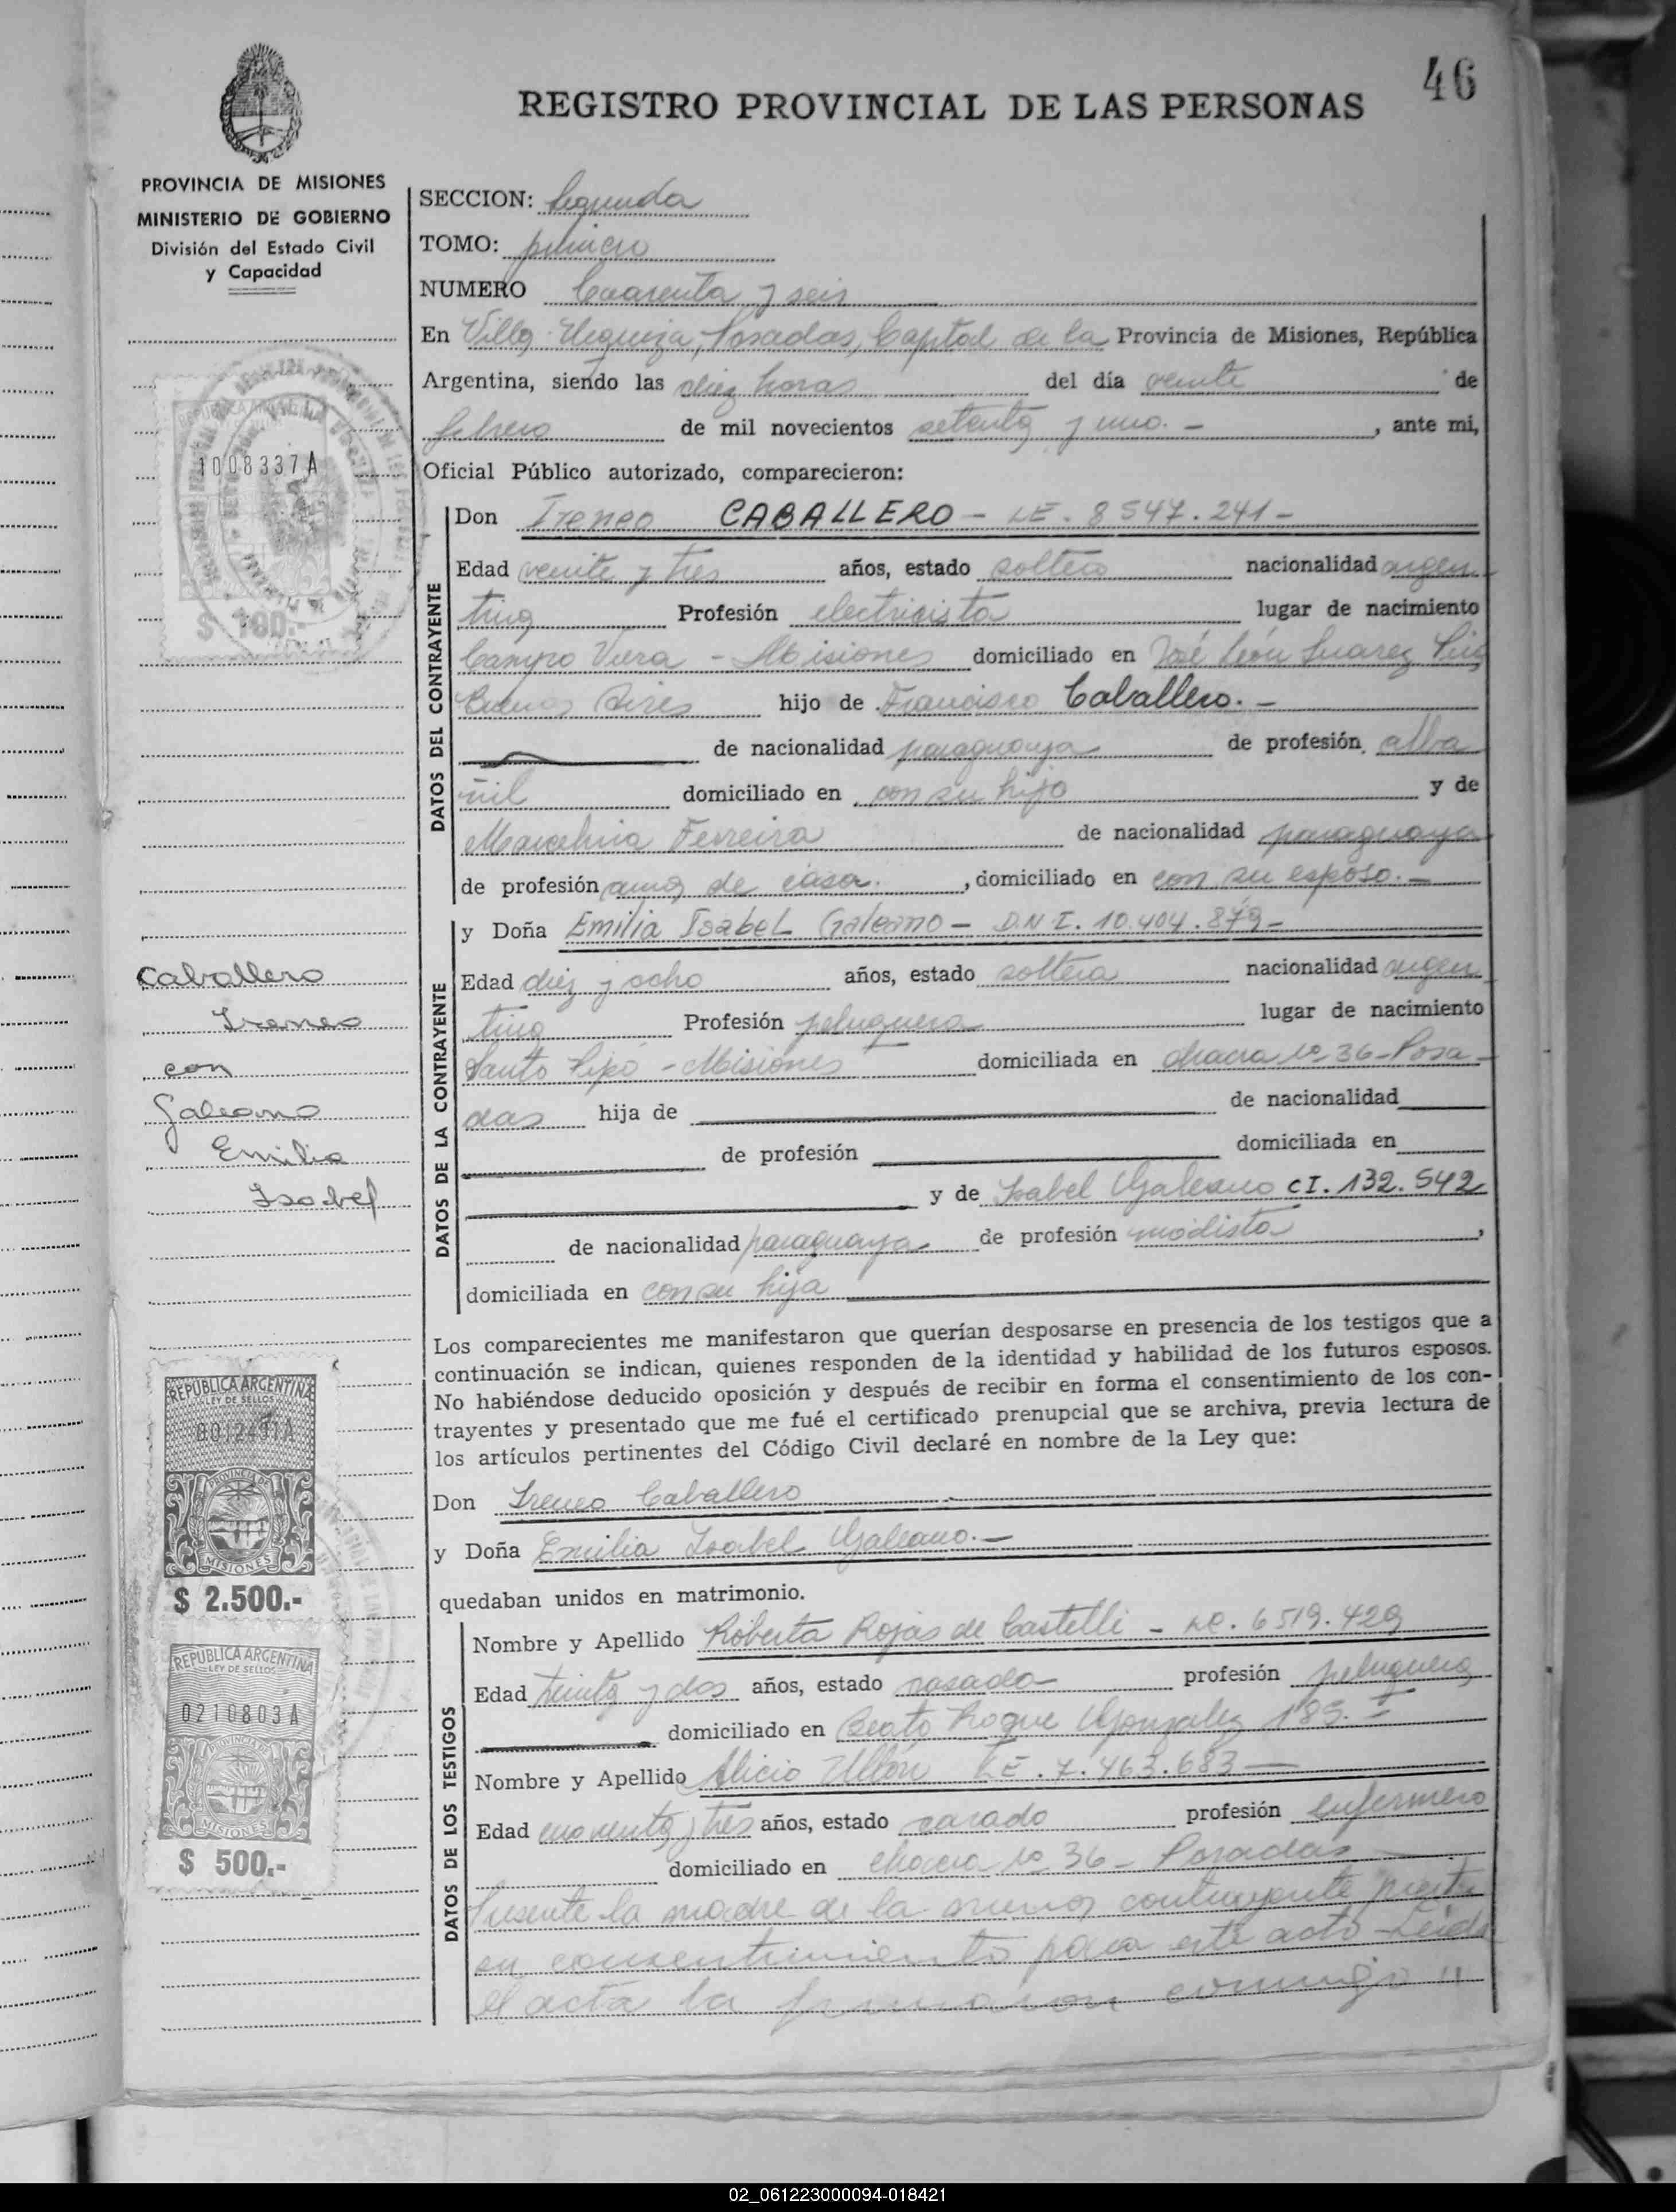 46
REGISTRO PROVINCIAL DE LAS PERSONAS
PROVINCIA DE MISIONES
MINISTERIO DE GOBIERNO
División del Estado Civil
y Capacidad
SECCION: Segunda
TOMO: primero
NUMERO Cuarenta y seis
En Villa Urquiza, Posadas, Capital de la Provincia de Misiones, República
Argentina, siendo las diez horas del día veinte de
febrero de mil novecientos setenta y uno. - , ante mi,
Oficial Público autorizado, comparecieron:
1008337A
$ 100.-
DATOS DEL CONTRAYENTE
Don Ireneo CABALLERO - LE. 8547.241 -
Edad veinte y tres años, estado soltero nacionalidad argen
tina Profesión electricista lugar de nacimiento
Campo Viera - Misiones domiciliado en José León Suarez
Buenos Aires hijo de Francisco Caballero. -
de nacionalidad paraguaya de profesión alba
ñil domiciliado en con su hijo y de
Marcelina Ferreira de nacionalidad paraguaya
de profesión ama de casa. , domiciliado en con su esposo. -
DATOS DE LA CONTRAYENTE
y Doña Emilia Isabel Galeano - D.N.I. 10.404.879 -
Edad diez y ocho años, estado soltera nacionalidad argen
tina Profesión peluquera lugar de nacimiento
Santo Pipó - Misiones domiciliada en chacra no 36 - Posa
das hija de de nacionalidad
de profesión domiciliada en
y de Isabel Galeano CI. 132.542
de nacionalidad paraguaya de profesión modista ,
domiciliada en con su hija
Caballero
Ireneo
con
Galeano
Emilia
Isabel
Los comparecientes me manifestaron que querían desposarse en presencia de los testigos que a
continuación se indican, quienes responden de la identidad y habilidad de los futuros esposos.
No habiéndose deducido oposición y después de recibir en forma el consentimiento de los con-
trayentes y presentado que me fué el certificado prenupcial que se archiva, previa lectura de
los artículos pertinentes del Código Civil declaré en nombre de la Ley que:
Don Ireneo Caballero
y Doña Emilia Isabel Galeano. -
quedaban unidos en matrimonio.
REPUBLICA ARGENTINA
LEY DE SELLOS
PROVINCIA DE
MISIONES
$ 2.500.-
REPUBLICA ARGENTINA
LEY DE SELLOS
0210803A
PROVINCIA DE
MISIONES
$ 500.-
DATOS DE LOS TESTIGOS
Nombre y Apellido Roberta Rojas de Castelli - LC. 6519.429
Edad treinta y dos años, estado casada profesión peluquera
domiciliado en Beato Roque Gonzalez 185. -
Nombre y Apellido Alicio LE. 7.463.683 -
Edad y tres años, estado casado profesión enfermero
domiciliado en chacra no 36 - Posadas
Presente la madre de la menor contrayente presta
su consentimiento para este acto - Leida
el acta la firmaron conmigo "
02_061223000094-018421